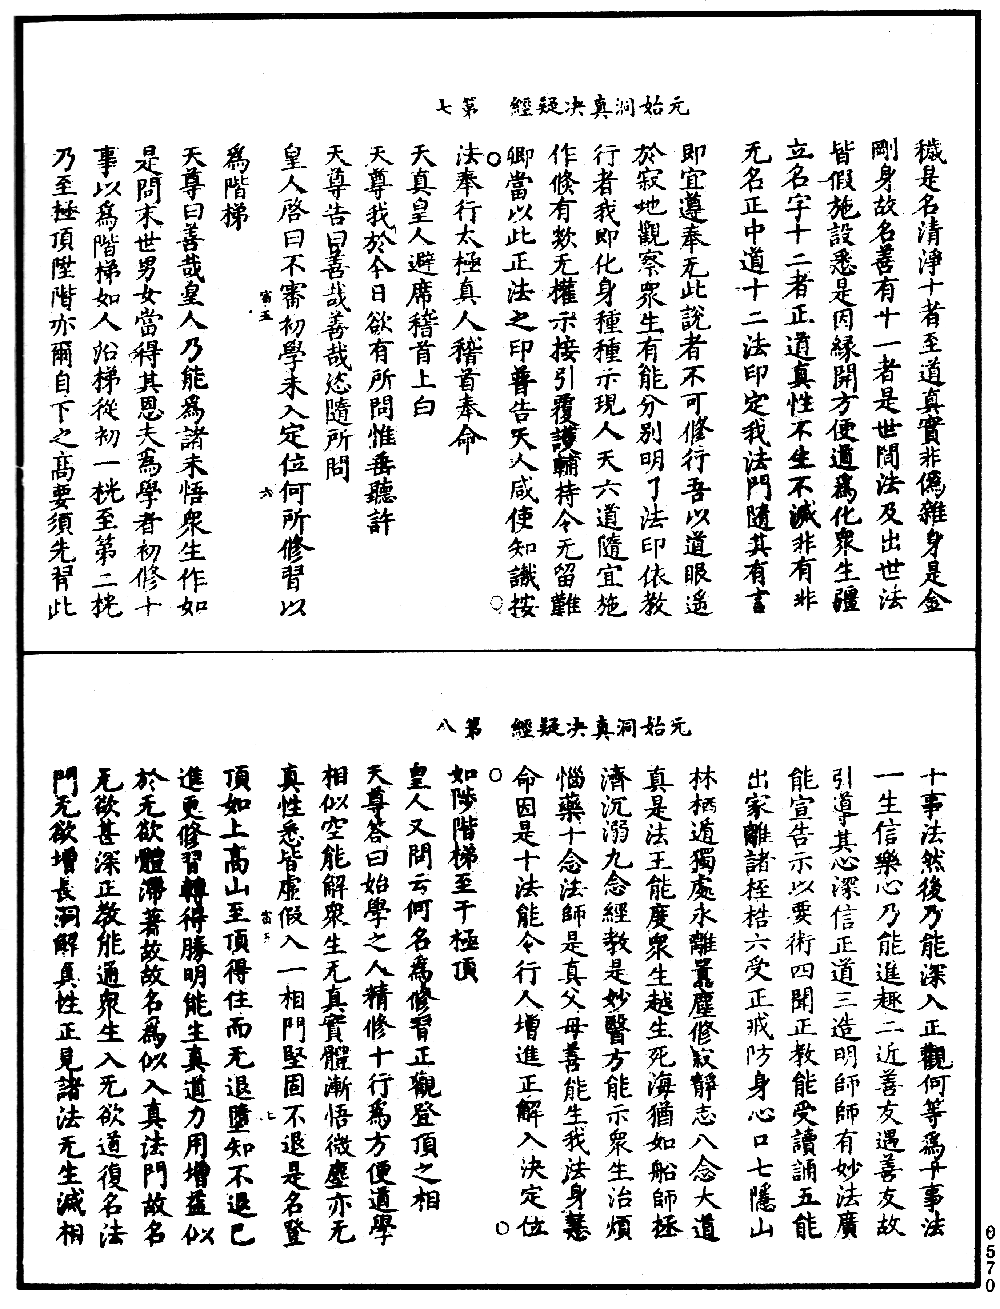 元始洞真決疑經　第七
穢是名清淨十者至道真實非偽雜身是金
剛身故名善有十一者是世間法及出世法
皆假施設悉是因緣開方便道為化衆生彊
立名字十二者正道真性不生不滅非有非
无名正中道十二法印定我法門隨其有言
即宜遵奉无此說者不可修行吾以道眼遥
於寂地觀察衆生有能分別明了法印依教
行者我即化身種種示現人天六道隨宜施
作條有欻无權示接引覆護輔持令无留難
卿當以此正法之印普告天人咸使知識按
法奉行太極真人稽首奉命
天真皇人避席稽首上白
天尊我於今日欲有所問惟垂聽許
天尊告曰善哉善哉恣隨所問
皇人啓曰不審初學未入定位何所修習以
為階梯
天尊曰善哉皇人乃能為諸未悟衆生作如
是問末世男女當得其恩夫為學者初修十
事以為階梯如人沿梯從初一桄至第二桄
乃至極頂陞階亦爾自下之高要須先習此
元始洞真決疑經　第八
十事法然後乃能深入正觀何等為十事法
一生信樂心乃能進趣二近善友遇善友故
引導其心深信正道三造明師師有妙法廣
能宣告示以要術四聞正教能受讀誦五能
出家離諸桎梏六受正戒防身心口七隱山
林栖遁獨處永離囂塵修寂靜志八念大道
真是法王能度衆生越生死海猶如船師拯
濟沉溺九念經教是妙醫方能示衆生治煩
惱藥十念法師是真父母善能生我法身慧
命因是十法能令行人增進正解入決定位
如陟階梯至于極頂
皇人又問云何名為修習正觀登頂之相
天尊答曰始學之人精修十行為方便道學
相似空能解衆生无真實體漸悟微塵亦无
真性悉皆虛假入一相門堅固不退是名登
頂如上高山至頂得住而无退墮知不退已
進更修習轉得勝明能生真道力用增益似
於无欲體滯著故故名為似入真法門故名
无欲甚深正教能通衆生入无欲道復名法
門无欲增長洞解真性正見諸法无生滅相
0570